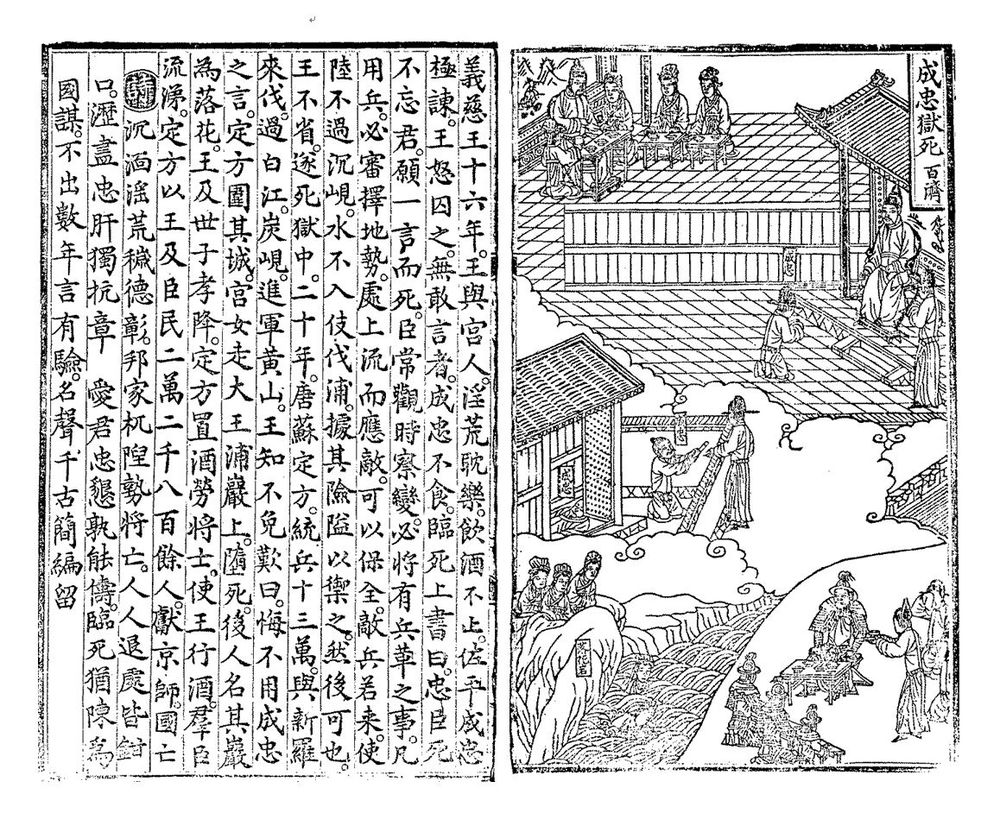 成忠獄死 百濟
成忠
成忠
義慈王十六年。王與宮人。淫荒耽樂。飲酒不止。佐平成忠
極諫。王怒囚之。無敢言者。成忠不食。臨死上書曰。忠臣死
不忘君。願一言而死。臣常觀時察變。必將有兵革之事。凡
用兵。必審擇地勢。處上流而應敵。可以保全。敵兵若來。使
陸不過沉峴。水不入伎伐浦。據其險隘以禦之。然後可也。
王不省。遂死獄中。二十年。唐蘇定方。統兵十三萬。與新羅
來伐。過白江。炭峴。進軍黃山。王知不免歎曰。悔不用成忠
之言。定方圍其城。宮女走大王浦巖上。墮死。後人名其巖
為落花。王及世子孝降。定方置酒勞將士。使王行酒。羣臣
流涕。定方以王及臣民二萬二千八百餘人。獻京師。國亡
詩 沉湎滛荒穢德彰。邦家杌隉勢將亡。人人退處皆鉗
口。瀝盡忠肝獨抗章 愛君忠懇孰能儔。臨死猶陳為
國謀。不出數年言有驗。名聲千古簡編留